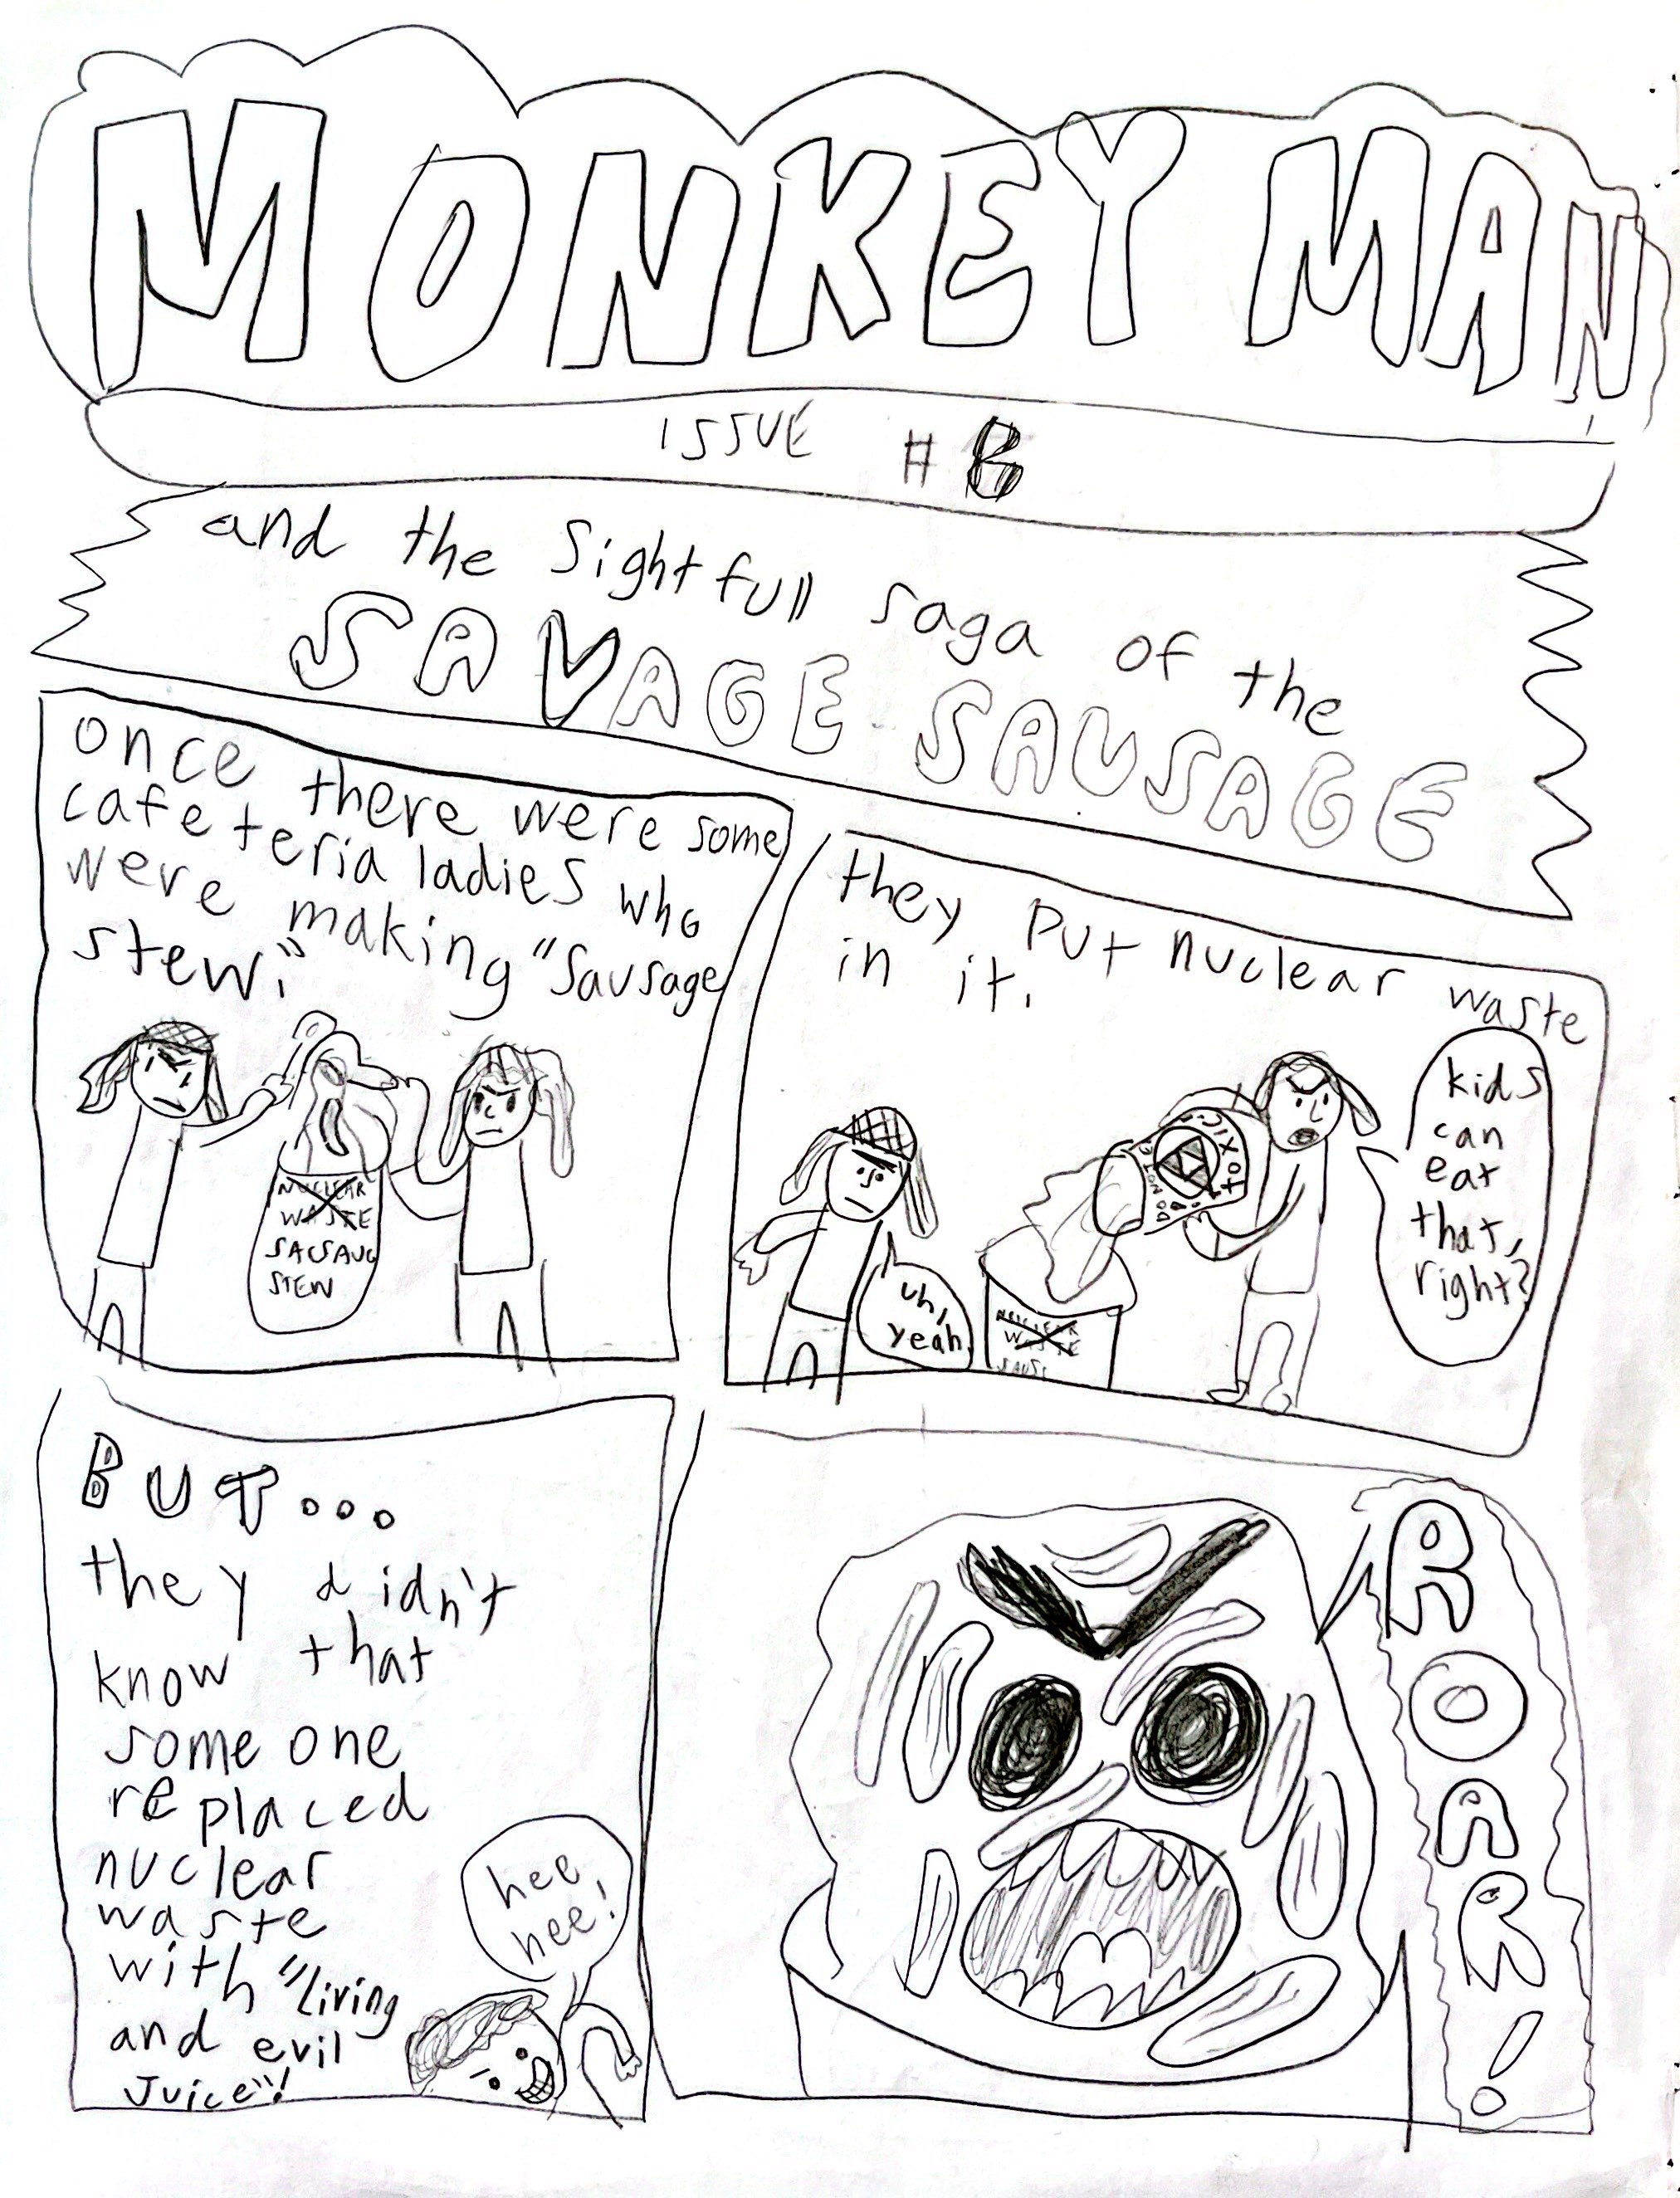 MONKEY MAN
ISSUE # B
and the Sightfull saga of the
SAVAGE SAUSAGE
once there were some
cafeteria ladies who
were making "Sausage
stew."
NUCLEAR
WASTE
SAUSAUG
STEW
they put nuclear waste
in it.
kids
can
eat
that,
right?
TOXIC
DO NOT
uh,
yeah
NUCLEAR
WASTE
SAUS
BUT...
they didn't
know that
some one
replaced
nuclear
waste
with "Living
and evil
Juice"!
hee
hee!
ROAR!